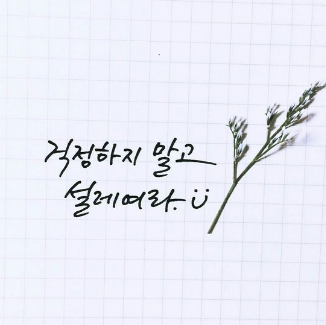 걱정하지 말고
설레여라. Ü